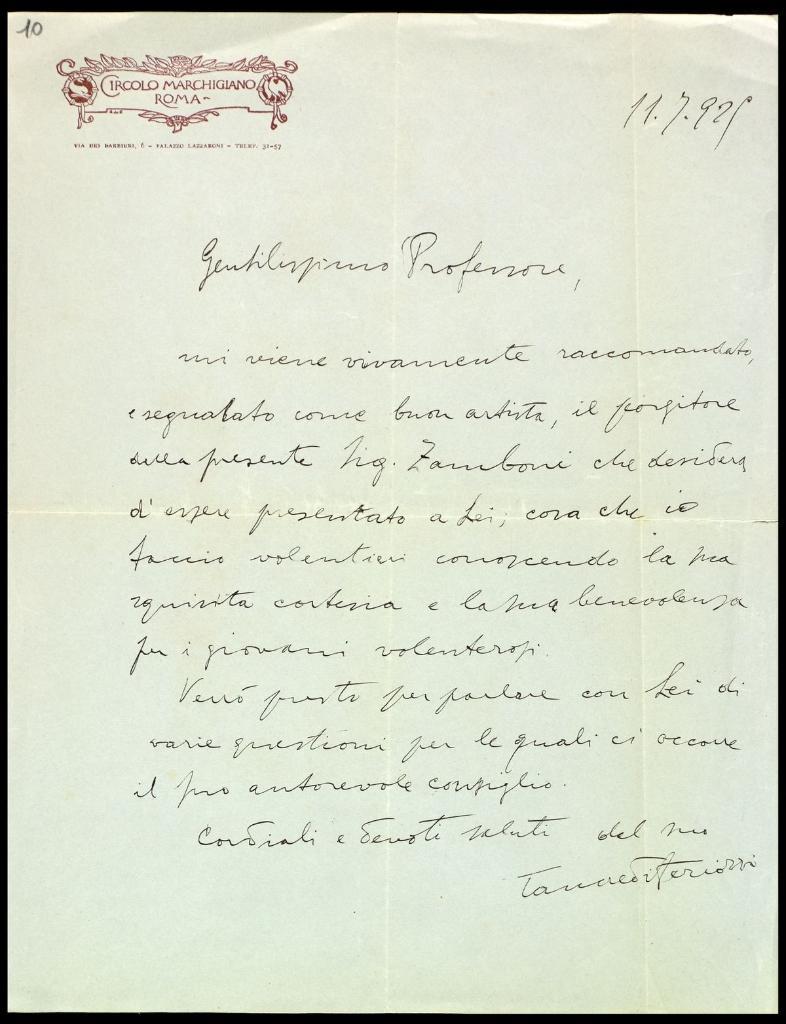 10
CIRCOLO MARCHIGIANO
ROMA
VIA DEI BARBIERI, 6 – PALAZZO LAZZARONI – TELEF. 31-57
11.7.925
Gentilissimo Professore,
mi viene vivamente raccomandato,
e segnalato come buon artista, il porgitore
della presente Sig. Zamboni che desidera
d'essere presentato a Lei; cosa che io
faccio volentieri conoscendo la sua
squisita cortesia e la sua benevolenza
per i giovani volenterosi.
Verrò presto per parlare con Lei di
varie questioni per le quali ci occorre
il suo autorevole consiglio.
Cordiali e devoti saluti dal suo
Tancredi